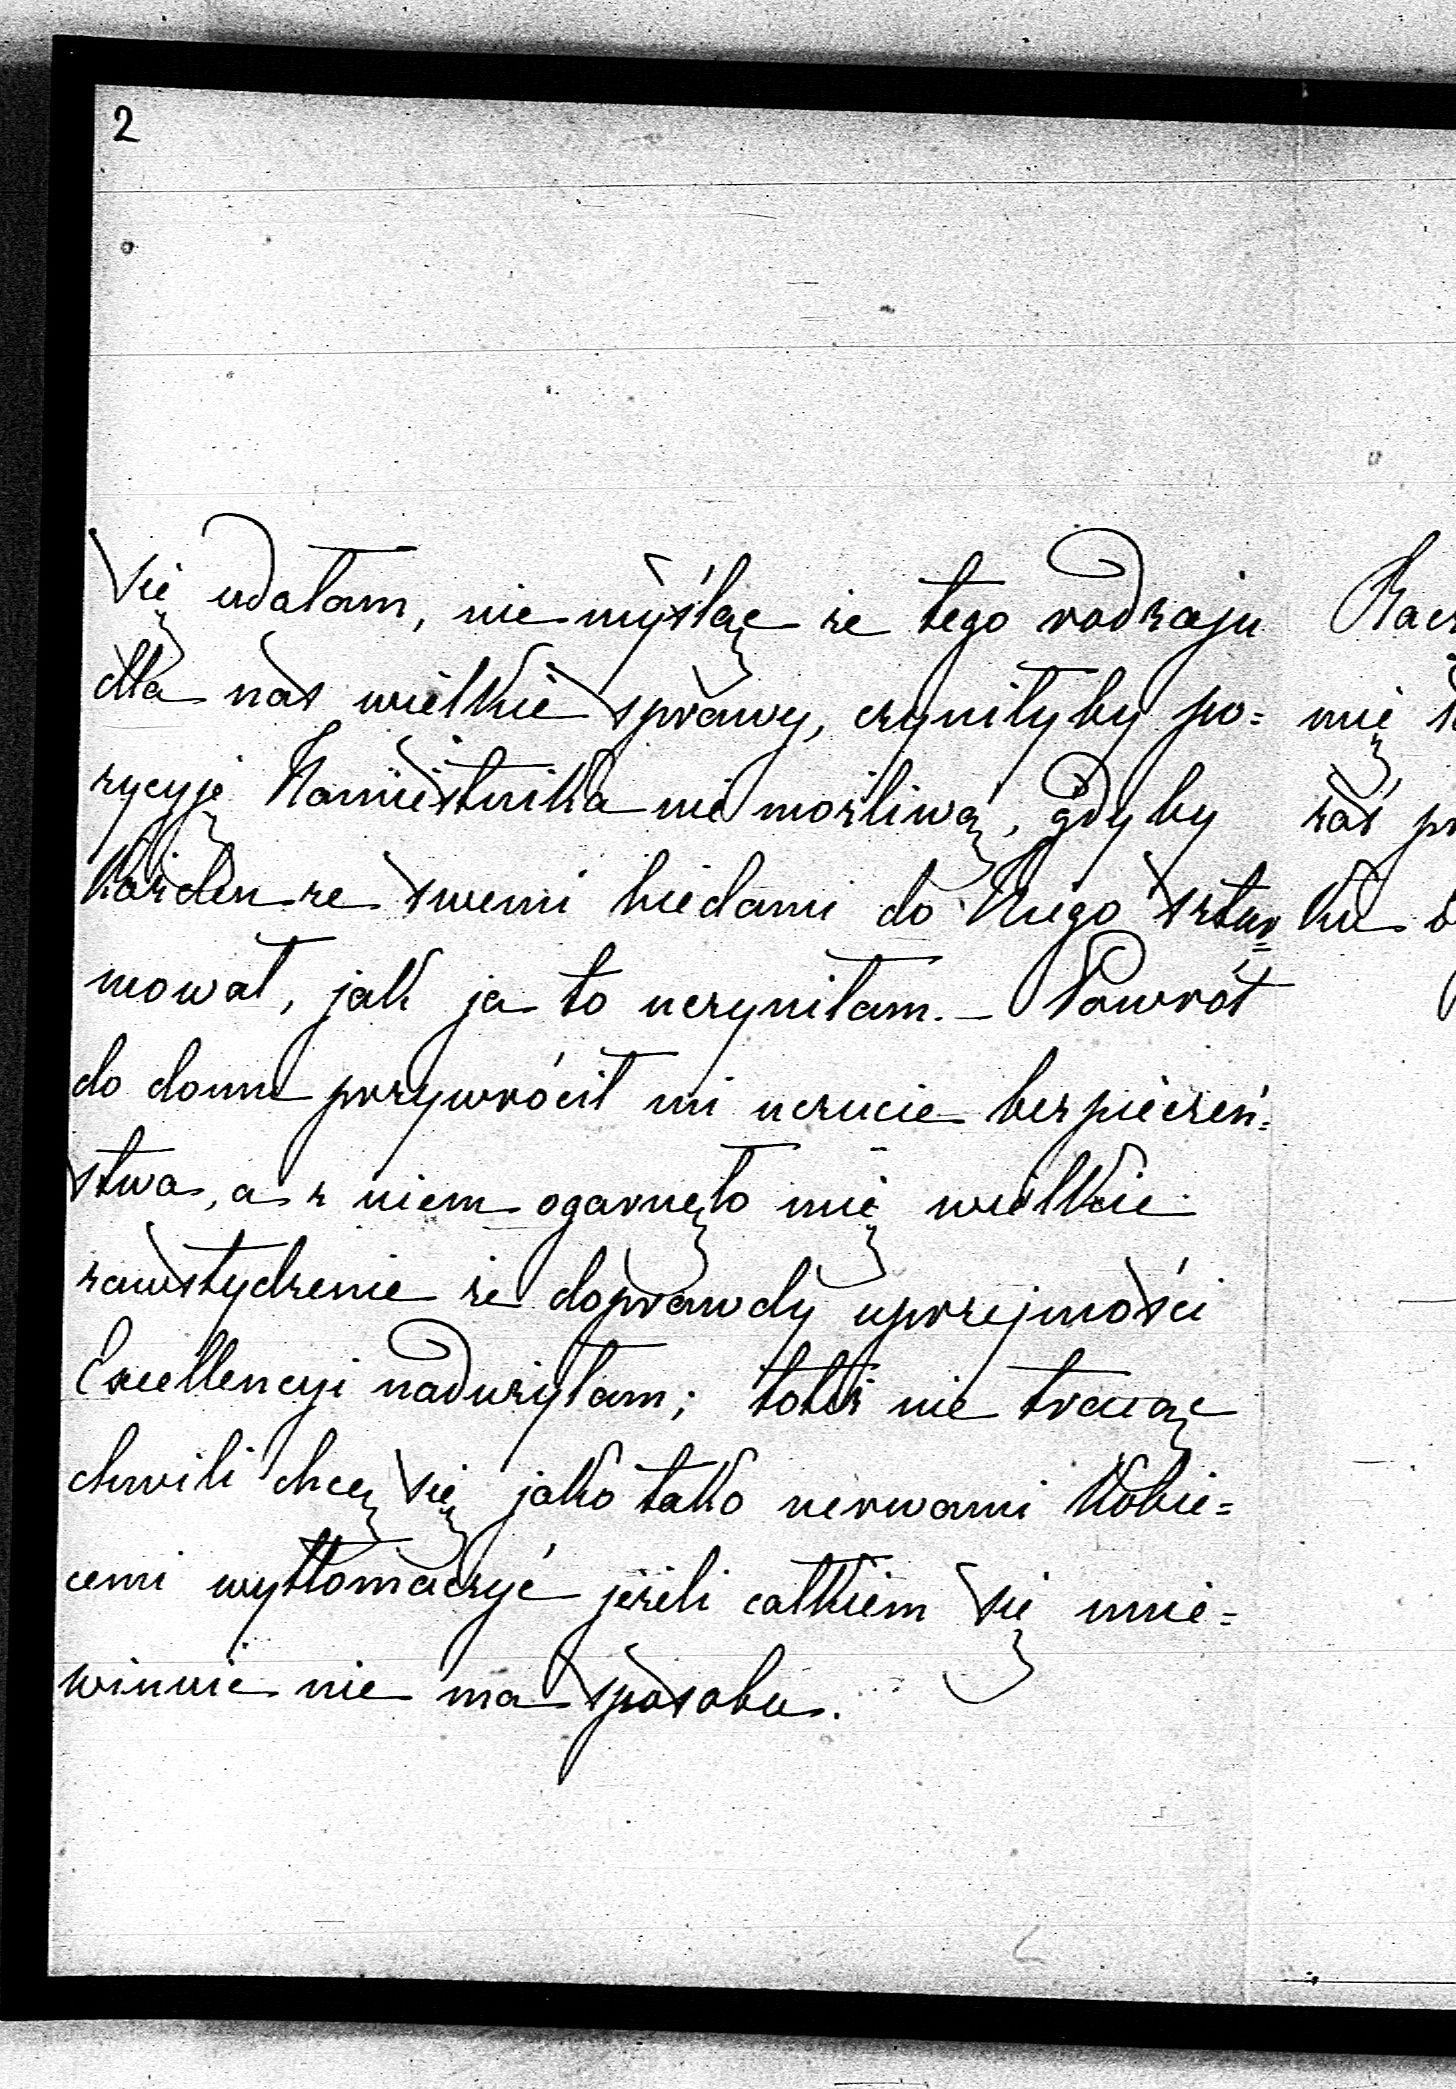 2
się udałam, nie myśląc że tego rodzaju
dla nas wielkie sprawy, czyniłyby po=
zycyję Namiestnika nie możliwą, gdyby
każden ze swemi biedami do Niego sztur=
mował, jak ja to uczyniłam. – Powrót
do domu przywrócił mi uczucie bezpieczeń=
stwa, a z niem ogarnęło mię wielkie
zawstydzenie że doprawdy uprzejmości
Excellencyi nadużyłam; toteż nie tracąc
chwili chcę się jako tako nerwami kobie=
cemi wytłomaczyć jeżeli całkiem się unie=
winnić nie ma sposobu.
mię
zaś
ku